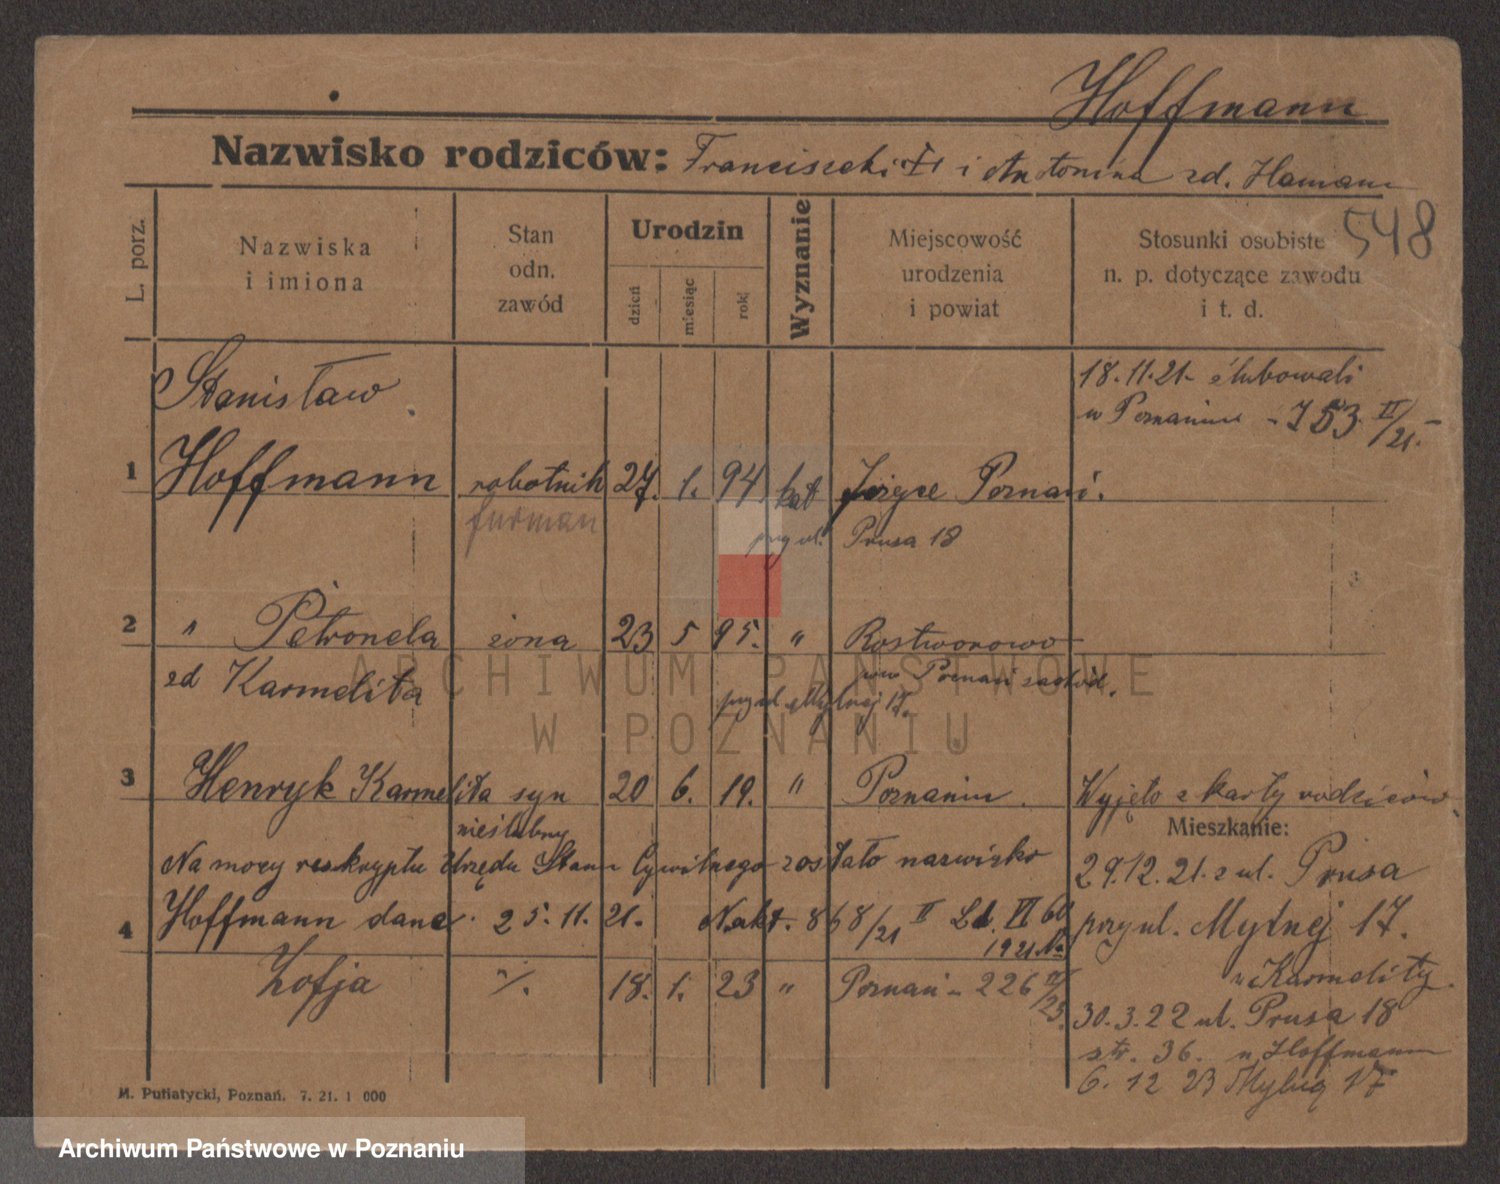 Hoffmann
Nazwisko rodziców: Franciszek i Antonina zd. Hamann
548
L. porz.
Nazwiska i imiona
Stan odn. zawód
Urodzin
dzień
miesiąc
rok
Wyznanie
Miejscowość urodzenia i powiat
Stosunki osobiste n. p. dotyczące zawodu i t. d.
18.11.21. ślubowali
w Poznaniu - 753 II/21. -
Stanisław
1 Hoffmann robotnik 27. 1. 94 kat Jeżyce Poznań.
furman przy ul. Prusa 18
2 " Petronela żona 23 5 95. " Rostworowo
zd Karmelita pow Poznań zachód.
Mytnej 17.
3 Henryk Karmelita syn 20 6. 19. " Poznaniu. Wyjęto z karty rodziców.
nieślubny
Mieszkanie:
Na mocy reskryptu Urzędu Stanu Cywilnego zostało nazwisko
29.12.21. z ul. Prusa
4 Hoffmann dane. 25.11.21. N. akt. 868/21 II Ld. VI 60
1921.
przy ul. Mytnej 17.
u Karmelity.
Zofja ·/. 18. 1. 23 " Poznań - 226 II/23.
30.3.22 ul. Prusa 18
str. 36. u Hoffmann
6. 12 23 Mylną 17
M. Putiatycki, Poznań. 7. 21. 1 000
ARCHIWUM PAŃSTWOWE
W POZNANIU
Archiwum Państwowe w Poznaniu